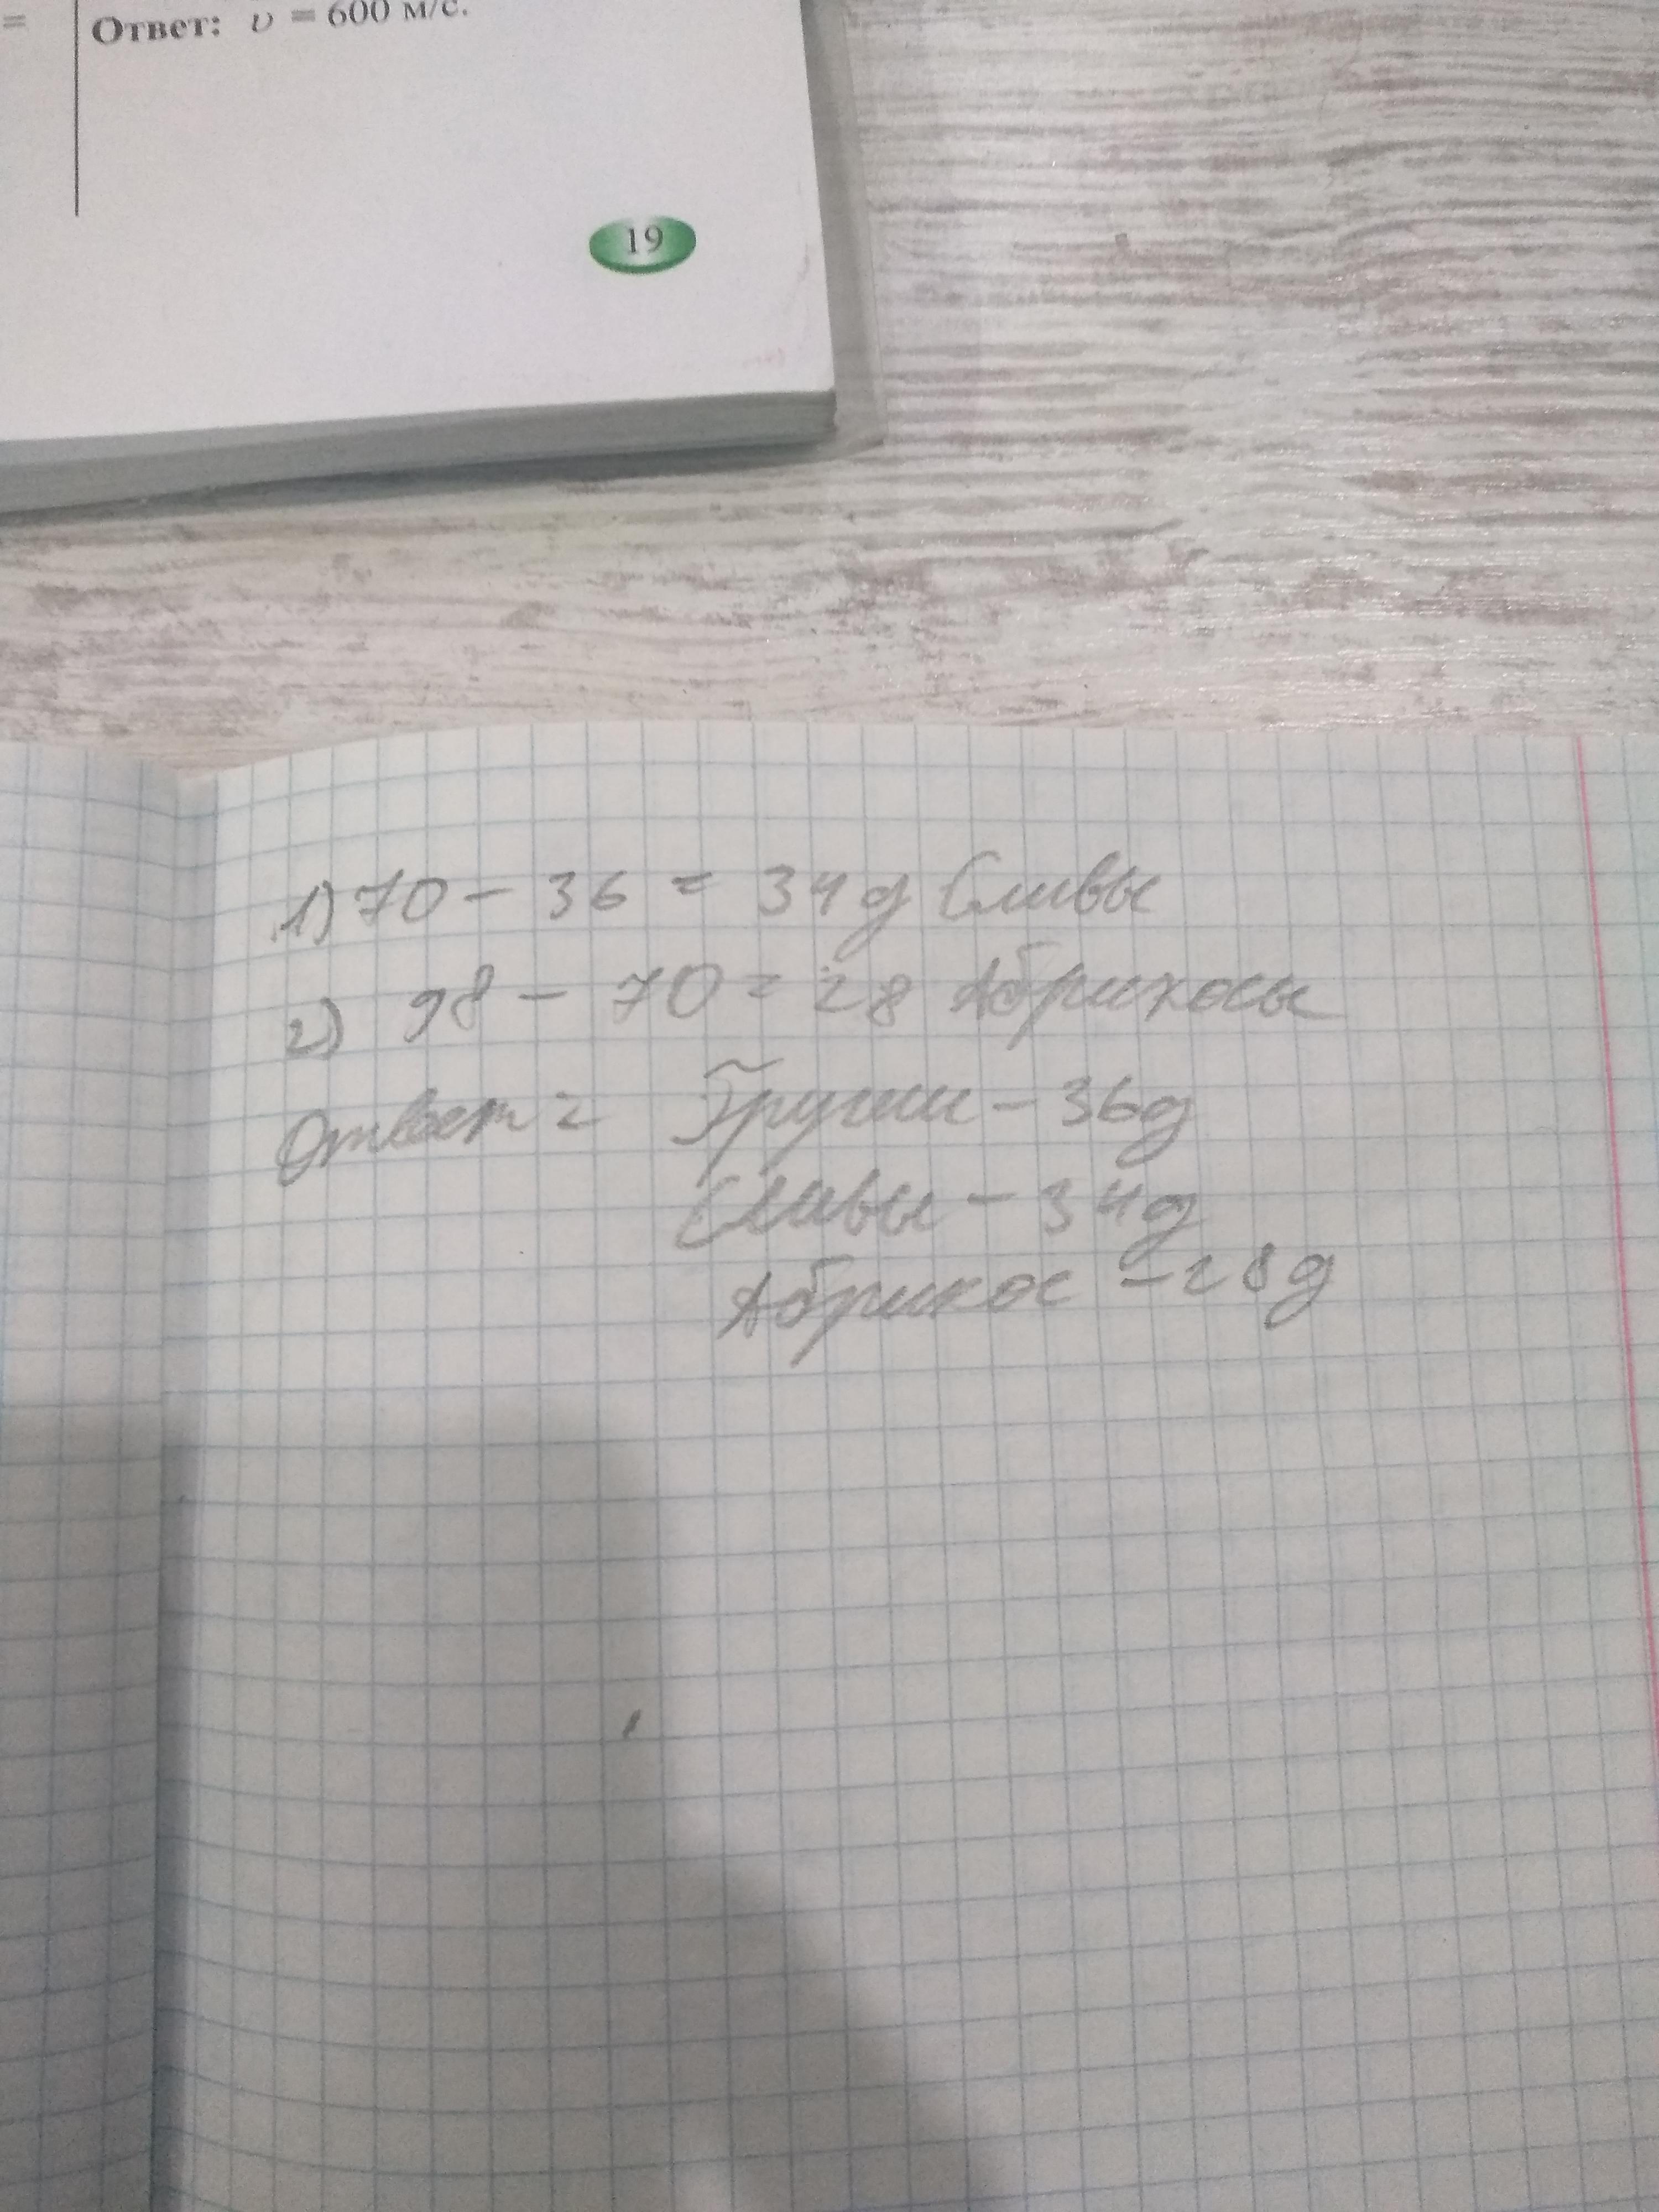 =
Ответ: υ = 600 м/с.
19
1) 70 - 36 = 34д Сливы
2) 98 - 70 = 28 Абрикосы
Ответ = Груши - 36д
Сливы - 34д
Абрикос - 28д